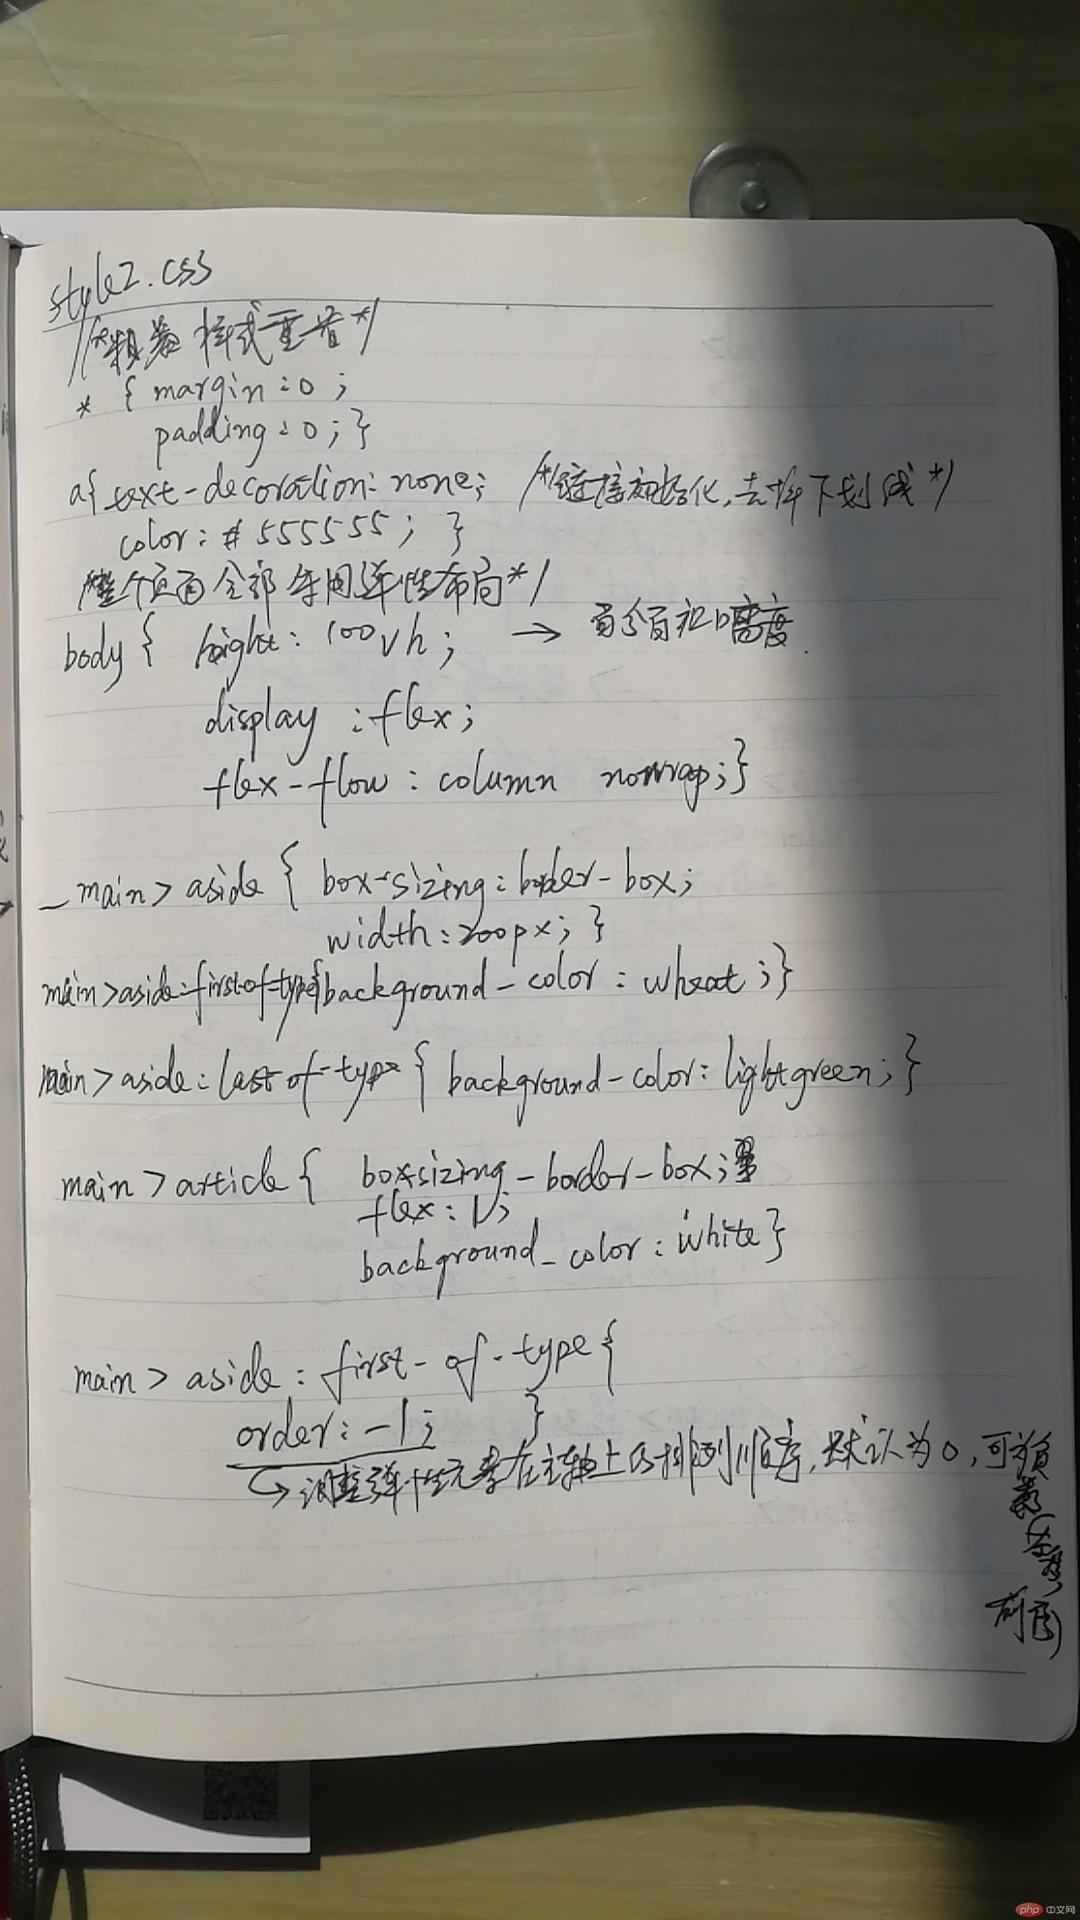 style2.css
/*粗暴 样式重置*/
* { margin:0;
padding:0;}
a{ text-decoration:none; /*链接初始化,去掉下划线*/
color:#555555; }
/*整个页面全部采用弹性布局*/
body { height:100vh; → 高度
display:flex;
flex-flow:column nowrap;}
main>aside { box-sizing:border-box;
width:200px; }
main>aside:first-of-type{background-color:wheat;}
main>aside:last-of-type { background-color:lightgreen;}
main>article { box-sizing-border-box;
flex:1;
background-color:white}
main>aside:first-of-type{
order:-1; }
→调整弹性元素在主轴上的排列顺序,默认为0,可为负
前面)
php 中文网